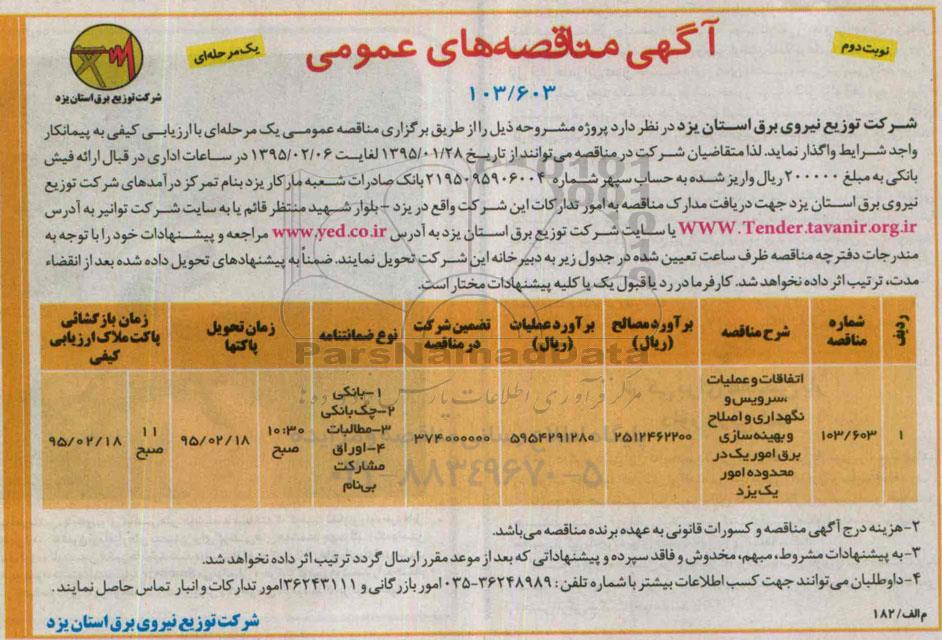 آگهی مناقصه‌های عمومی
نوبت دوم
یک مرحله‌ای
۱۰۳/۶۰۳
شرکت توزیع برق استان یزد
شرکت توزیع نیروی برق استان یزد در نظر دارد پروژه مشروحه ذیل را از طریق برگزاری مناقصه عمومی یک مرحله‌ای با ارزیابی کیفی به پیمانکار
واجد شرایط واگذار نماید. لذا متقاضیان شرکت در مناقصه می‌توانند از تاریخ ۱۳۹۵/۰۱/۲۸ لغایت ۱۳۹۵/۰۲/۰۶ در ساعات اداری در قبال ارائه فیش
بانکی به مبلغ ۲۰۰۰۰۰ ریال واریز شده به حساب سپهر شماره ۰۲۱۹۵۰۹۵۹۰۶۰۰۴ بانک صادرات شعبه مارکار یزد بنام تمرکز درآمدهای شرکت توزیع
نیروی برق استان یزد جهت دریافت مدارک مناقصه به امور تدارکات این شرکت واقع در یزد - بلوار شهید منتظر قائم یا به سایت شرکت توانیر به آدرس
WWW.Tender.tavanir.org.ir یا سایت شرکت توزیع برق استان یزد به آدرس www.yed.co.ir مراجعه و پیشنهادات خود را با توجه به
مندرجات دفترچه مناقصه ظرف ساعت تعیین شده در جدول زیر به دبیرخانه این شرکت تحویل نمایند. ضمناً به پیشنهادهای تحویل داده شده بعد از انقضاء
مدت، ترتیب اثر داده نخواهد شد. کارفرما در رد یا قبول یک یا کلیه پیشنهادات مختار است.
ردیف
شماره مناقصه
شرح مناقصه
برآورد مصالح (ریال)
برآورد عملیات (ریال)
تضمین شرکت در مناقصه
نوع ضمانتنامه
زمان تحویل پاکتها
زمان بازگشائی پاکت ملاک ارزیابی کیفی
۱
۱۰۳/۶۰۳
اتفاقات و عملیات
،سرویس و
نگهداری و اصلاح
و بهینه‌سازی
برق امور یک در
محدوده امور
یک یزد
۲۵۱۲۴۶۲۲۰۰
۵۹۵۴۲۹۱۲۸۰
۳۷۴۰۰۰۰۰۰
۱-بانکی
۲-چک بانکی
۳-مطالبات
۴-اوراق
مشارکت
بی‌نام
۱۰:۳۰ صبح
۹۵/۰۲/۱۸
۱۱ صبح
۹۵/۰۲/۱۸
ParsNamadData
مرکز فرآوری اطلاعات پارس نماد داده‌ها
۰۲۱-۸۸۳۴۹۶۷۰-۵
۲-هزینه درج آگهی مناقصه و کسورات قانونی به عهده برنده مناقصه می‌باشد.
۳-به پیشنهادات مشروط، مبهم، مخدوش و فاقد سپرده و پیشنهاداتی که بعد از موعد مقرر ارسال گردد ترتیب اثر داده نخواهد شد.
۴-داوطلبان می‌توانند جهت کسب اطلاعات بیشتر با شماره تلفن : ۳۶۲۴۸۹۸۹-۰۳۵ امور بازرگانی و ۳۶۲۴۳۱۱۱ امور تدارکات و انبار تماس حاصل نمایند.
م الف/۱۸۲
شرکت توزیع نیروی برق استان یزد